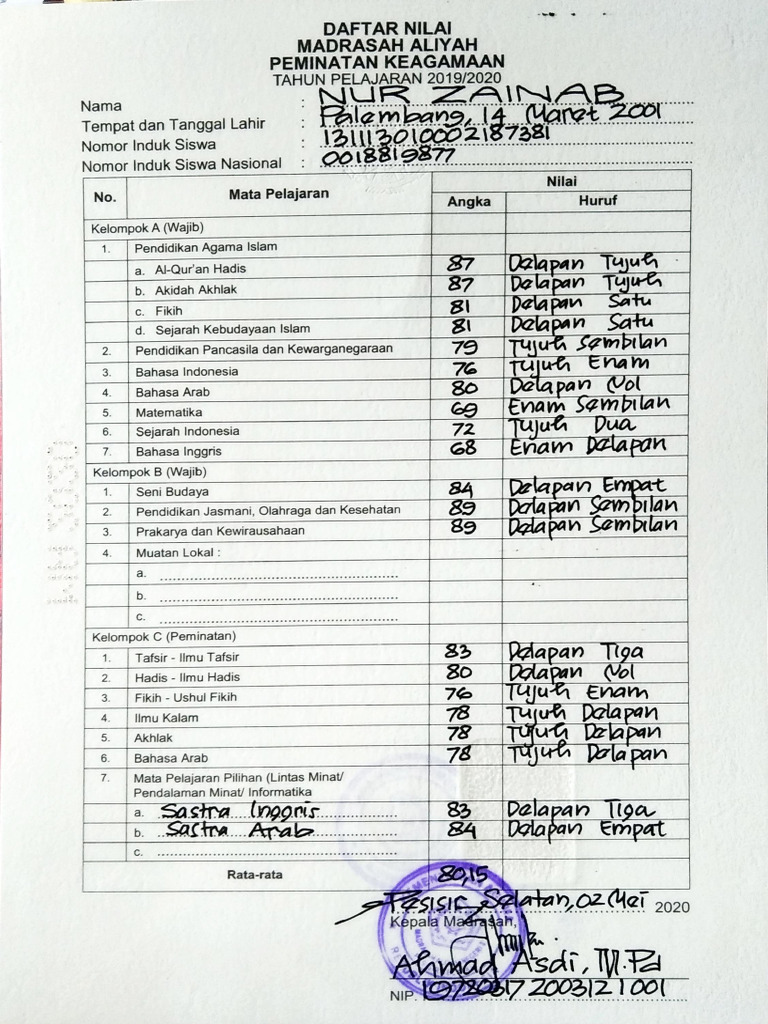 DAFTAR NILAI
MADRASAH ALIYAH
PEMINATAN KEAGAMAAN
TAHUN PELAJARAN 2019/2020
Nama : NUR ZAINAB
Tempat dan Tanggal Lahir : Palembang, 14 Maret 2001
Nomor Induk Siswa : 131113010002187381
Nomor Induk Siswa Nasional : 0018819877
No. Mata Pelajaran Nilai
Angka Huruf
Kelompok A (Wajib)
1. Pendidikan Agama Islam
a. Al-Qur'an Hadis 87 Delapan Tujuh
b. Akidah Akhlak 87 Delapan Tujuh
c. Fikih 81 Delapan Satu
d. Sejarah Kebudayaan Islam 81 Delapan Satu
2. Pendidikan Pancasila dan Kewarganegaraan 79 Tujuh Sembilan
3. Bahasa Indonesia 76 Tujuh Enam
4. Bahasa Arab 80 Delapan Nol
5. Matematika 69 Enam Sembilan
6. Sejarah Indonesia 72 Tujuh Dua
7. Bahasa Inggris 68 Enam Delapan
Kelompok B (Wajib)
1. Seni Budaya 84 Delapan Empat
2. Pendidikan Jasmani, Olahraga dan Kesehatan 89 Delapan Sembilan
3. Prakarya dan Kewirausahaan 89 Delapan Sembilan
4. Muatan Lokal :
a.
b.
c.
Kelompok C (Peminatan)
1. Tafsir - Ilmu Tafsir 83 Delapan Tiga
2. Hadis - Ilmu Hadis 80 Delapan Nol
3. Fikih - Ushul Fikih 76 Tujuh Enam
4. Ilmu Kalam 78 Tujuh Delapan
5. Akhlak 78 Tujuh Delapan
6. Bahasa Arab 78 Tujuh Delapan
7. Mata Pelajaran Pilihan (Lintas Minat/
Pendalaman Minat/ Informatika
a. Sastra Inggris 83 Delapan Tiga
b. Sastra Arab 84 Delapan Empat
c.
Rata-rata 80,15
Pesisir Selatan, 02 Mei 2020
Kepala Madrasah,
Ahmad Asdi, M.Pd
NIP. 197803172003121001